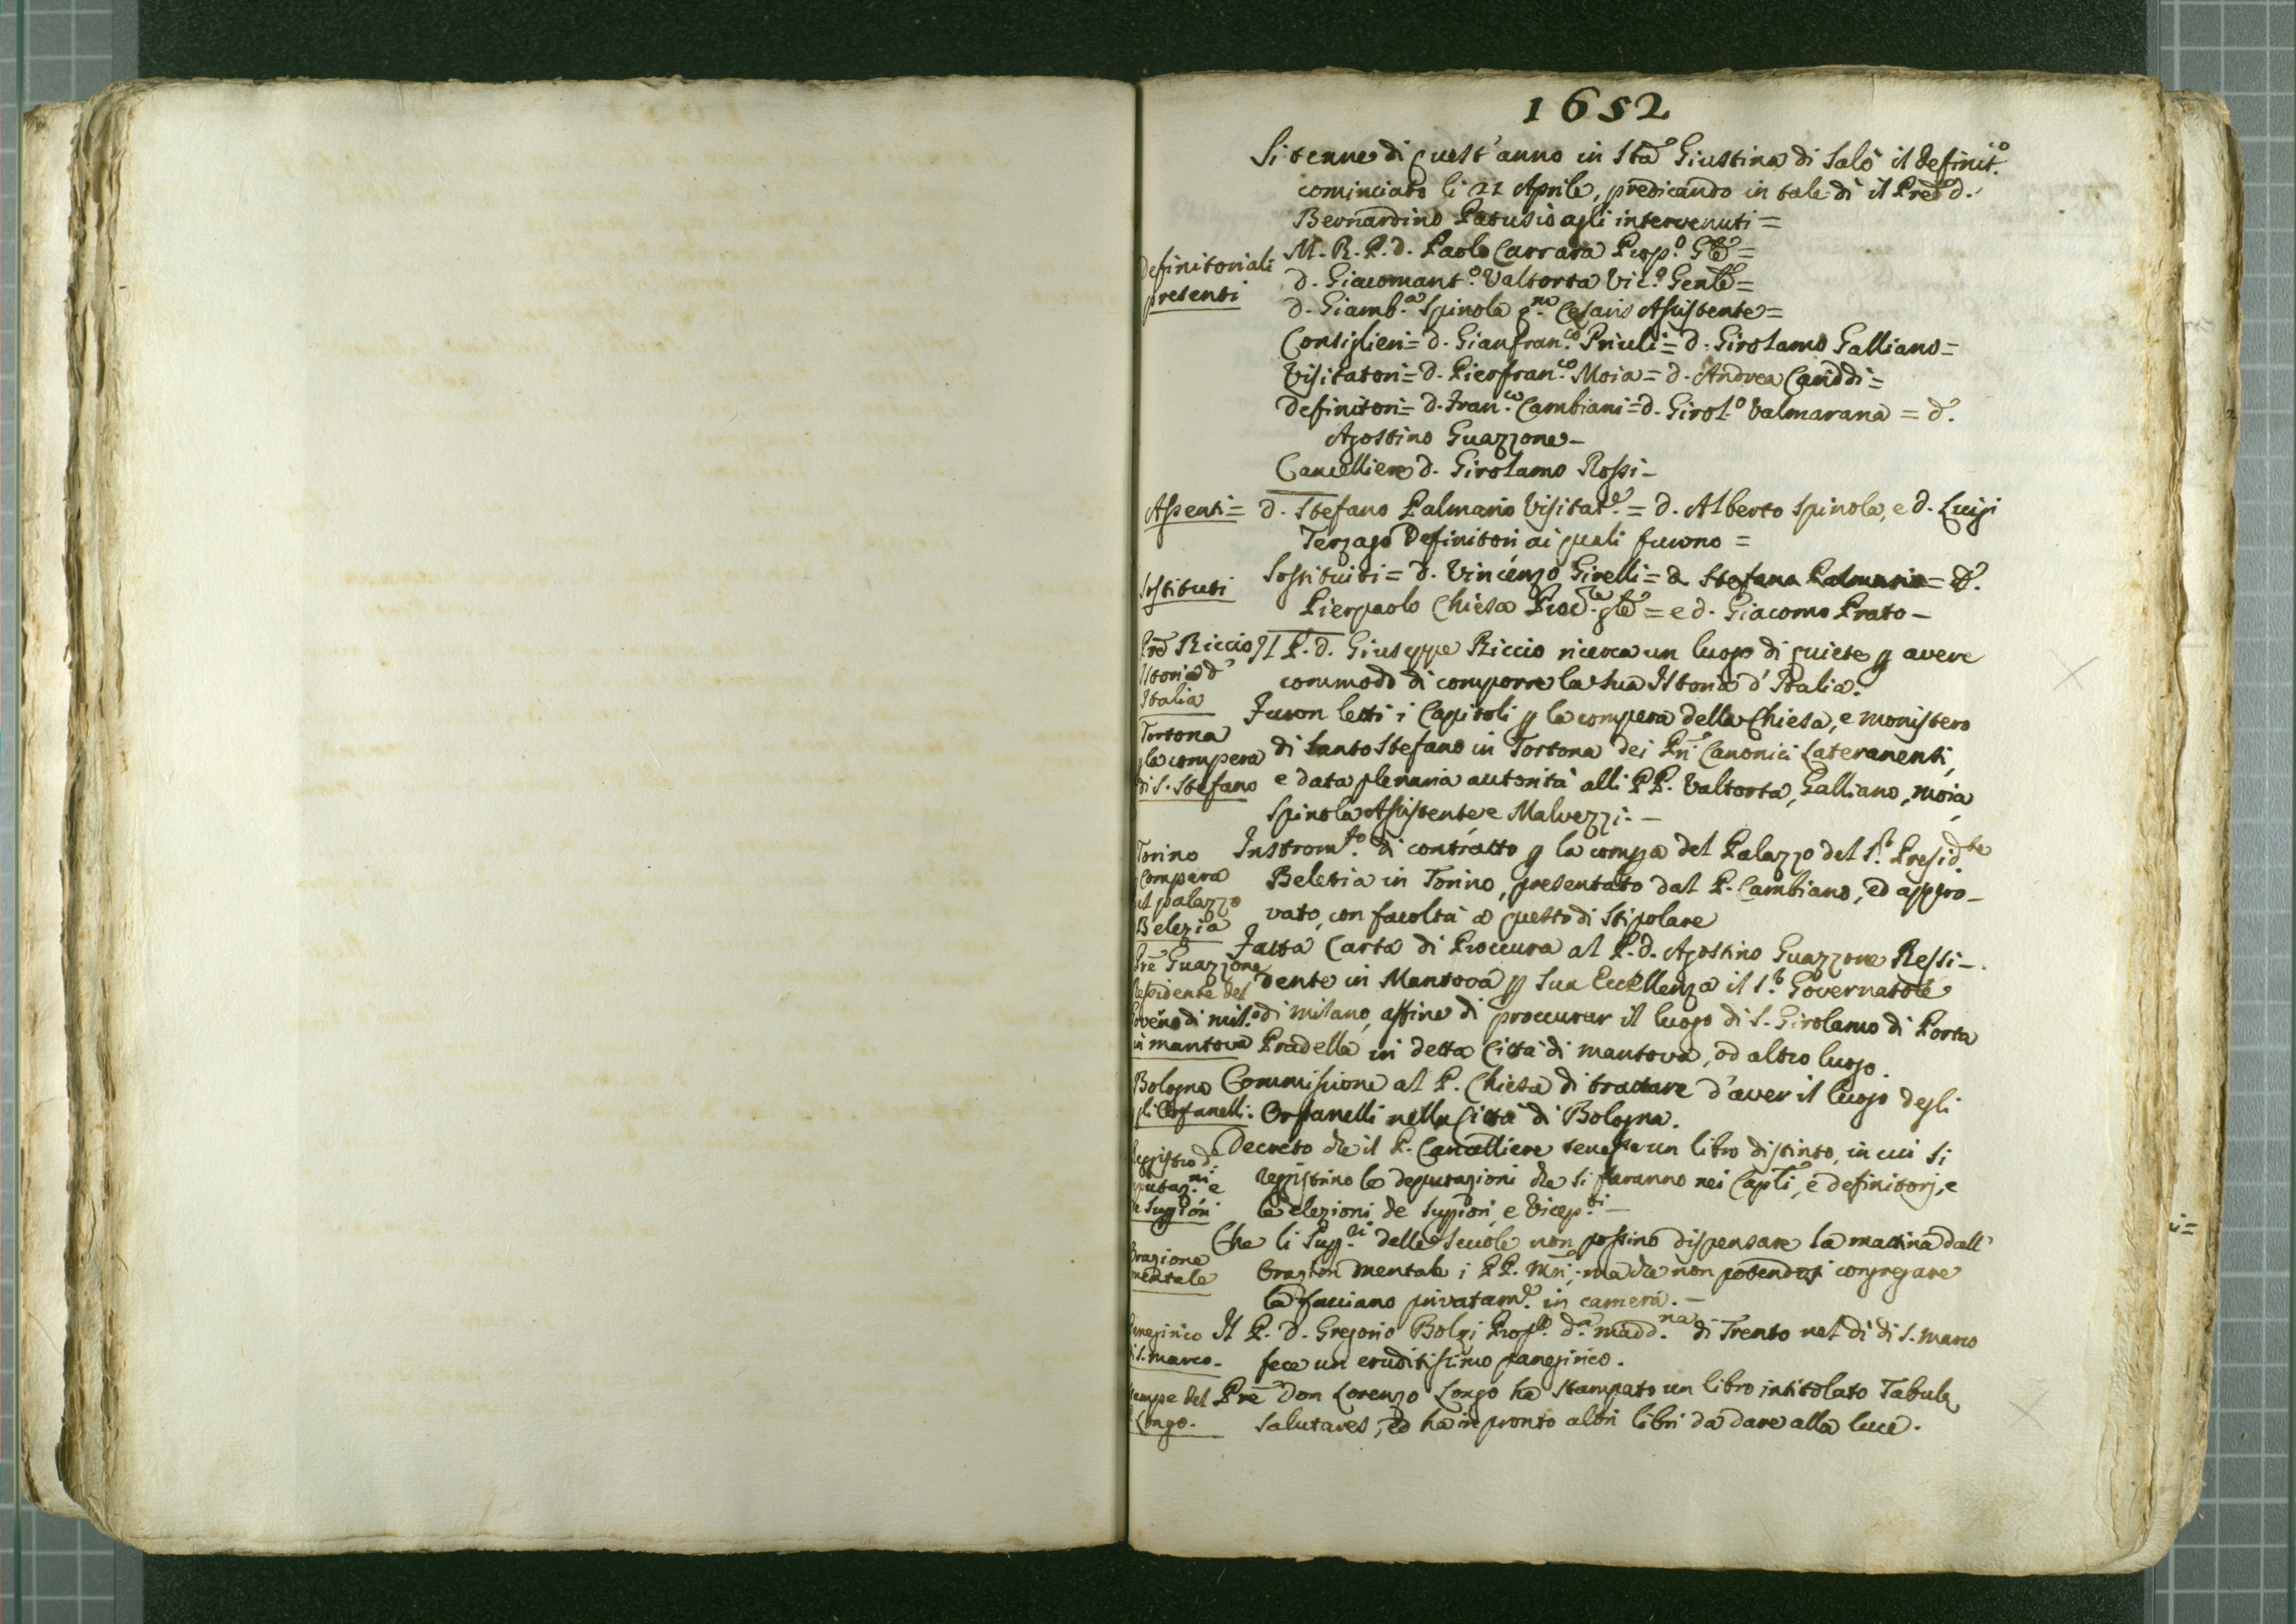 1652
Si tenne di quest'anno in Sta Giustina di Salò il definit.o
cominciato li 21 Aprile, predicando in tale dì il Pred.o d.
Bernardino Patusio agli intervenuti =
Definitoriali
presenti
M. R. P. d. Paolo Carrara Prop.o Gle =
d. Giacomant.o Valtorta Vic.o Genle =
d. Giamb.a Spinola q.m Cesario Assistente =
Consiglieri = d. Gianfran.co Priuli = d. Girolamo Galliano =
Visitatori = d. Pierfran.co Moia = d. Andrea Cariddi =
Definitori = d. Fran.co Cambiani = d. Girol.o Valmarana = d.
Agostino Guazzone -
Cancelliere d. Girolamo Rossi -
Assenti = d. Stefano Palmario Visitat.e = d. Alberto Spinola, e d. Luigi
Terzago Definitori ai quali furono =
Sostituti
Sostituiti = d. Vincenzo Girelli = d. Stefano Palmario = d.
Pierpaolo Chiesa Proc.e gle = e d. Giacomo Prato -
Pre Riccio
Istoria d'
Italia
Il P. d. Giuseppe Riccio ricerca un luogo di quiete p avere
commodo di comporre la sua Istoria d'Italia.
Tortona
p la compera
di S. Stefano
Furon letti i Capitoli p la compera della Chiesa, e monistero
di Santo Stefano in Tortona dei Pri Canonici Lateranenti,
e data plenaria autorità alli PP. Valtorta, Galliano, Moia,
Spinola Assistente e Malvezzi. -
Torino
Compera
il palazzo
Belezia
Instrom.to di contratto p la compa del Palazzo del S.r Presid.te
Beletia in Torino, presentato dal P. Cambiano, ed appro-
vato, con facoltà a questo di stipolare
Pre Guazzone
Residente del
Governo di mil.o
in mantova
Fatta Carta di Proccura al P. d. Agostino Guazzone Ressi-
dente in Mantova p Sua Eccellenza il S.r Governatore
di milano, affine di proccurar il luogo di S. Girolamo di Porta
Pradella in detta Città di mantova, od altro luogo.
Bologna
gli Orfanelli.
Commissione al P. Chiesa di trattare d'aver il luogo degli
Orfanelli nella Città di Bologna.
Reggistro di
deputaz.ni e
de Suppiori
Decreto che il P. Cancelliere tenesse un libro distinto, in cui si
reggistrino le deputazioni che si faranno nei Capli, e definitorj, e
le elezioni de Suppiori, e Vicep.ti -
Orazione
mentale
Che li Sup.ri delle Scuole non possino dispensare la mattina dall'
Orazion mentale i PP. Mri, ma che non potendosi congregare
la facciano privatam.e in camera. -
Panegirico
di S. marco.
Il P. D. Gregorio Bolzi Prop.to d.a madd.na di Trento nel dì di S. marco
fece un eruditissimo panegirico.
Stampe del
P. Longo.
Pre Don Lorenzo Longo ha stampato un libro intitolato Tabulę
Salutares, ed ha in pronto altri libri da dare alla luce.